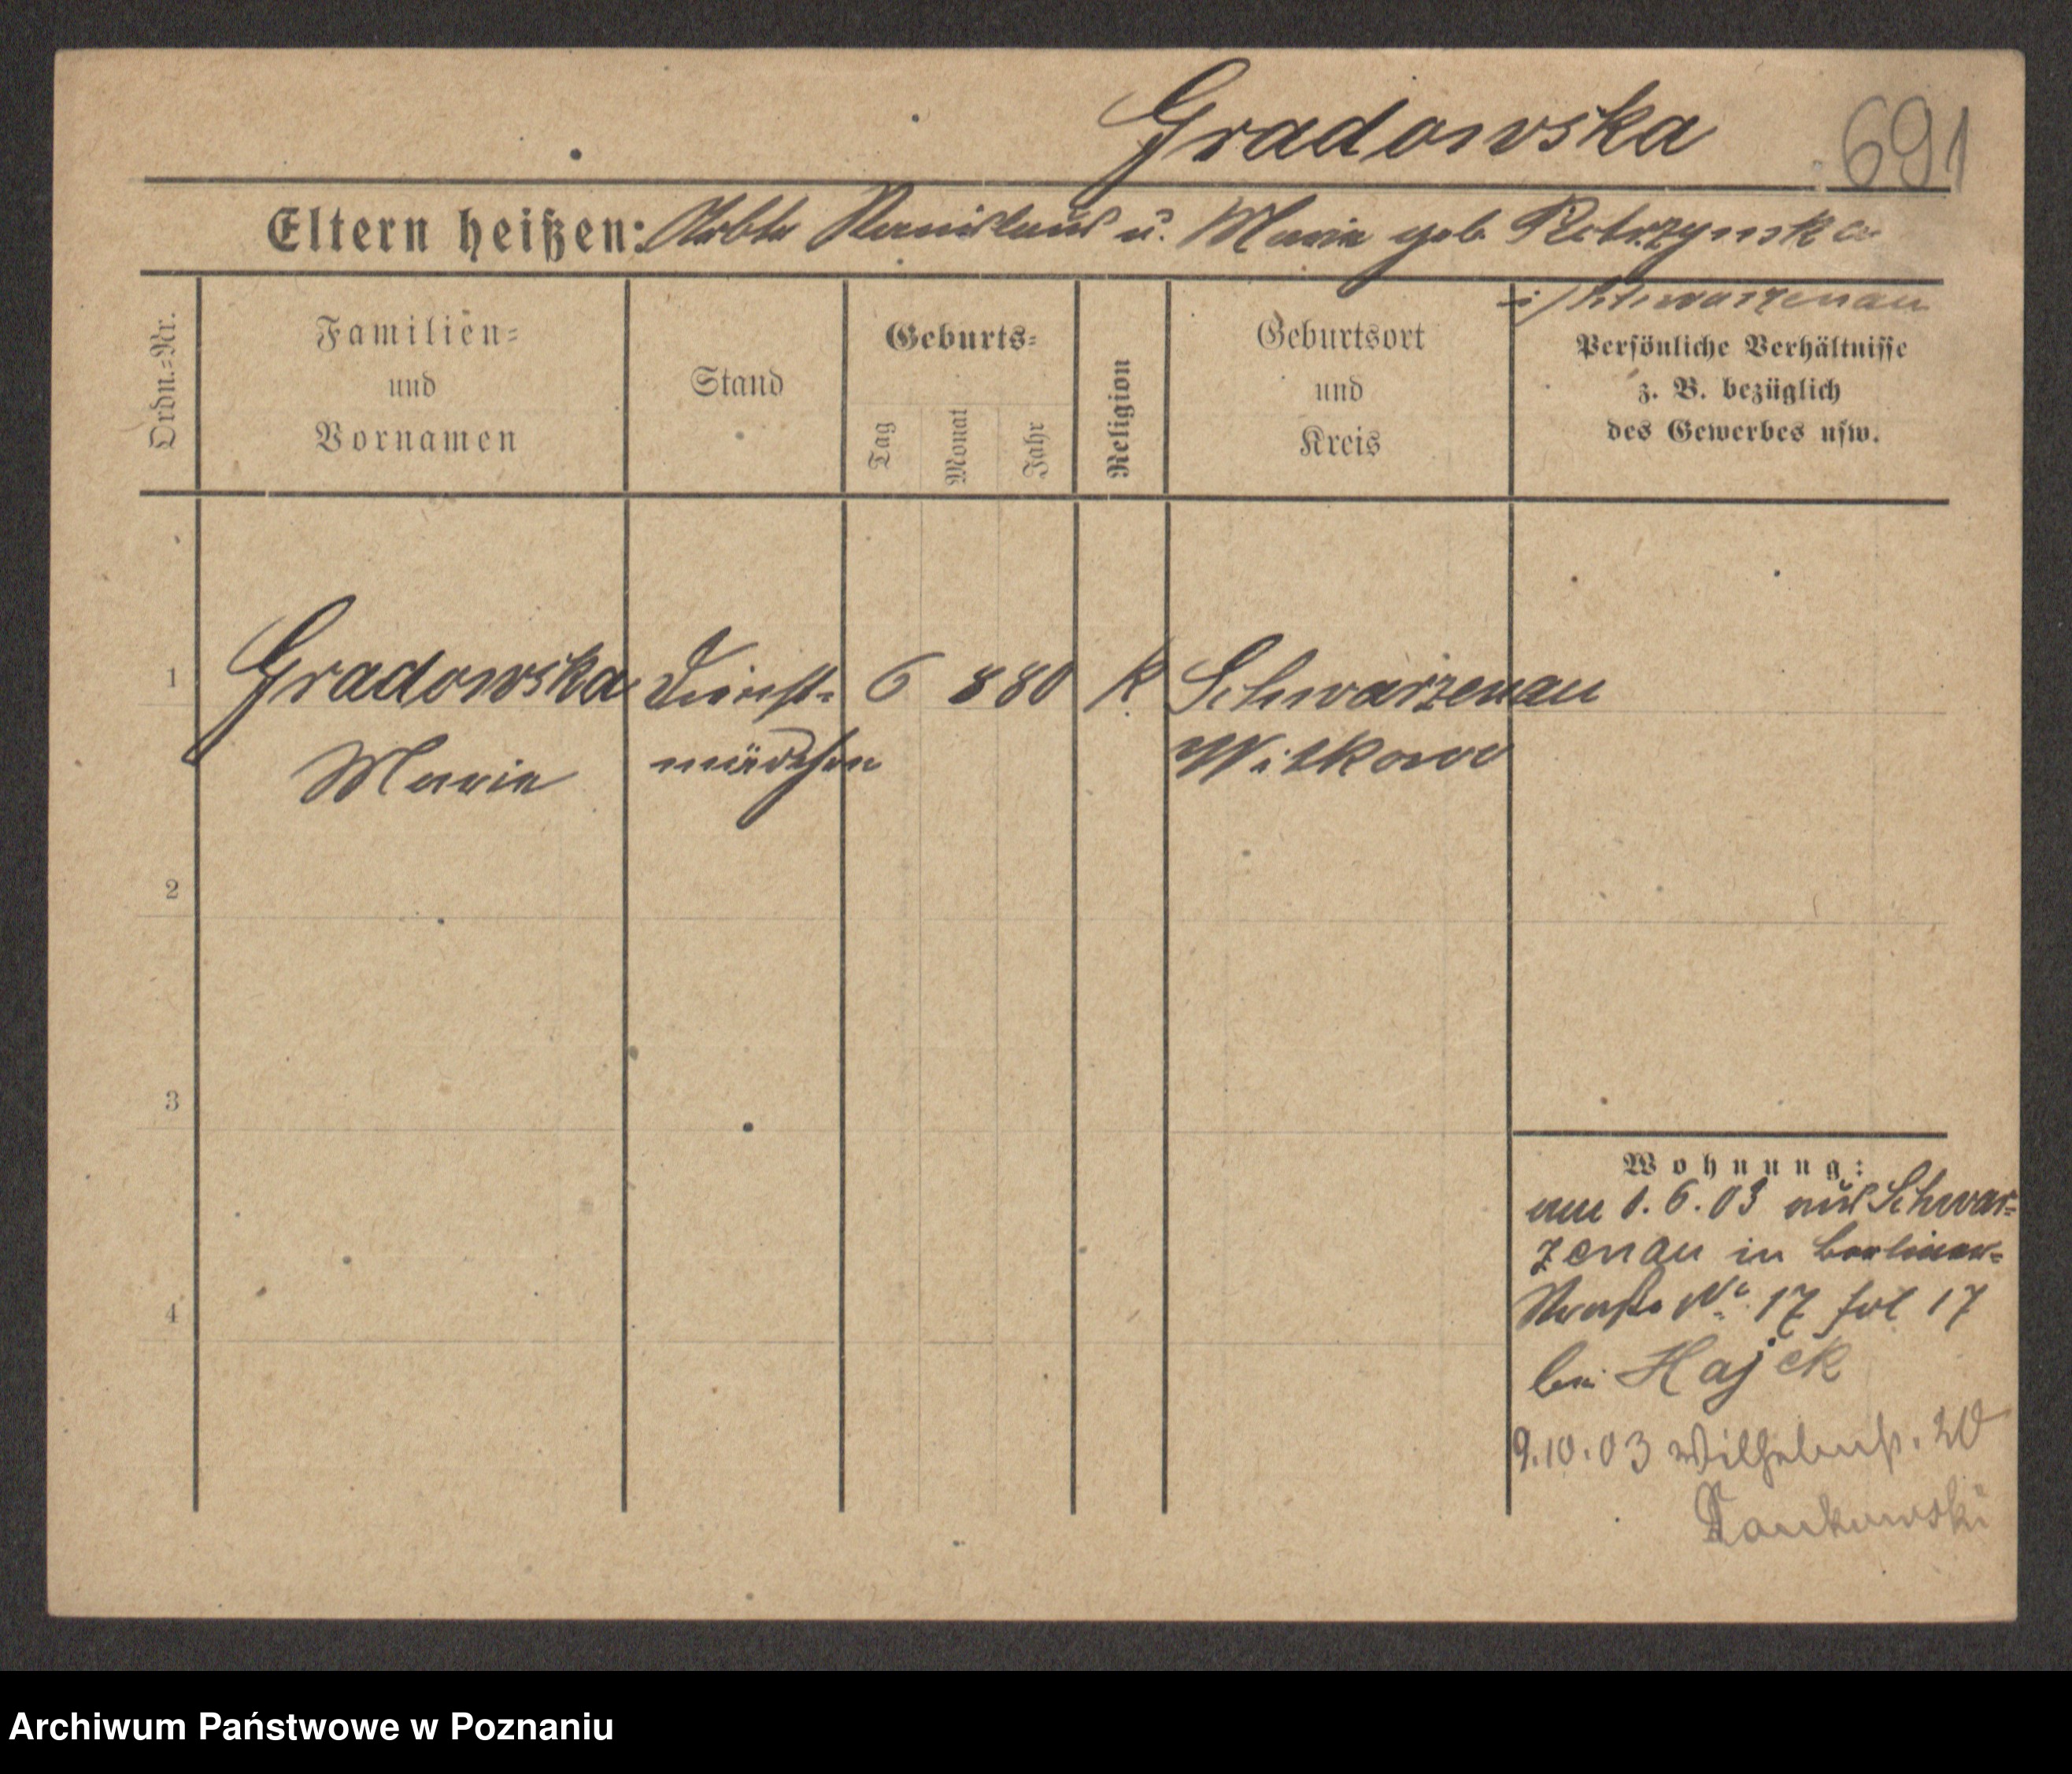 Gradowska 691
Eltern heißen: Arbtr Stanislaus u. Maria geb. Pietrzynska
i/Schwarzenau
Ordn.=Nr.
Familien=
und
Vornamen
Stand
Geburts=
Tag
Monat
Jahr
Religion
Geburtsort
und
Kreis
Persönliche Verhältnisse
z. B. bezüglich
des Gewerbes usw.
1 Gradowska Dienst= 6 8 80 k Schwarzenau
Maria mädchen Witkowo
2
3
4
Wohnung:
am 1.6.03 aus Schwar=
zenau in Berliner=
Straße No 17 fol 17
bei Hajek
9.10.03 Wilhelmstr. 20
Archiwum Państwowe w Poznaniu